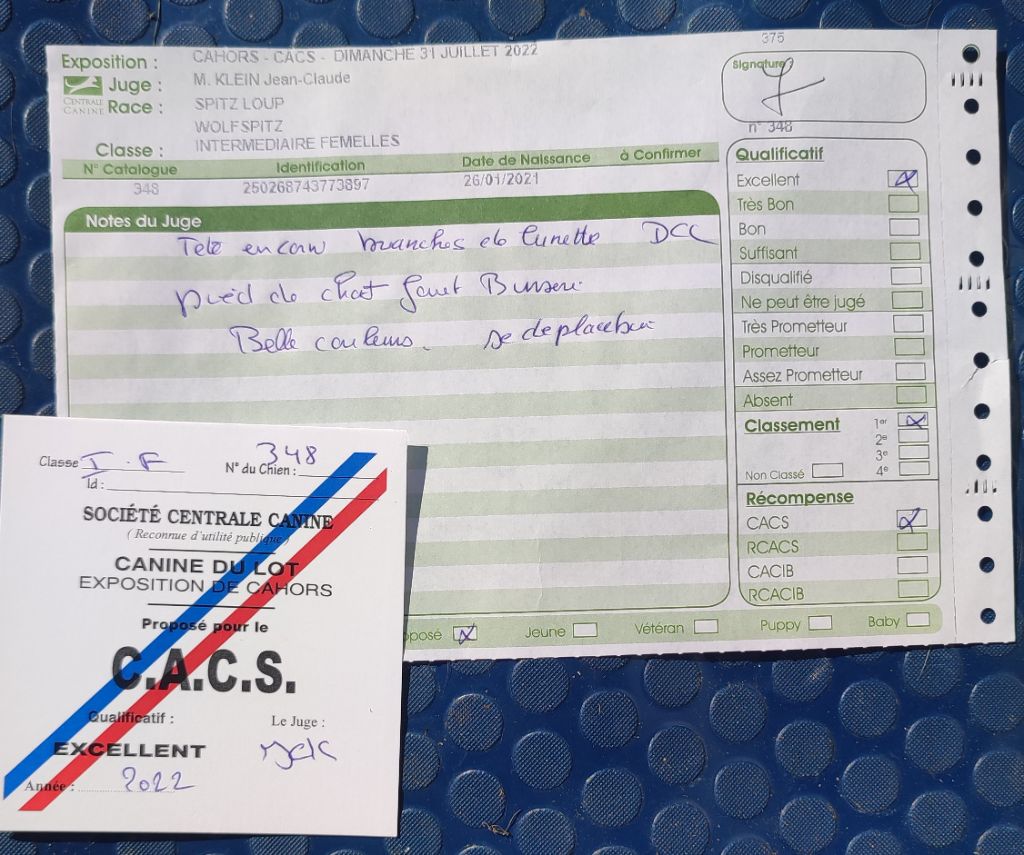 375
Exposition : CAHORS - CACS - DIMANCHE 31 JUILLET 2022
Juge : M. KLEIN Jean-Claude
CENTRALE CANINE
Race : SPITZ LOUP
WOLFSPITZ
Classe : INTERMEDIAIRE FEMELLES
Signature
n° 348
N° Catalogue Identification Date de Naissance à Confirmer
348 250268743773897 26/01/2021
Notes du Juge
branches de lunette
pied de chat
Belle couleurs. se deplace bien
Qualificatif
Excellent
Très Bon
Bon
Suffisant
Disqualifié
Ne peut être jugé
Très Prometteur
Prometteur
Assez Prometteur
Absent
Classement 1er
2e
3e
Non Classé 4e
Récompense
CACS
RCACS
CACIB
RCACIB
posé Jeune Vétéran Puppy Baby
Classe I.F N° du Chien : 348
Id :
SOCIÉTÉ CENTRALE CANINE
( Reconnue d'utilité publique )
CANINE DU LOT
EXPOSITION DE CAHORS
Proposé pour le
C.A.C.S.
Qualificatif : Le Juge :
EXCELLENT
Année : 2022